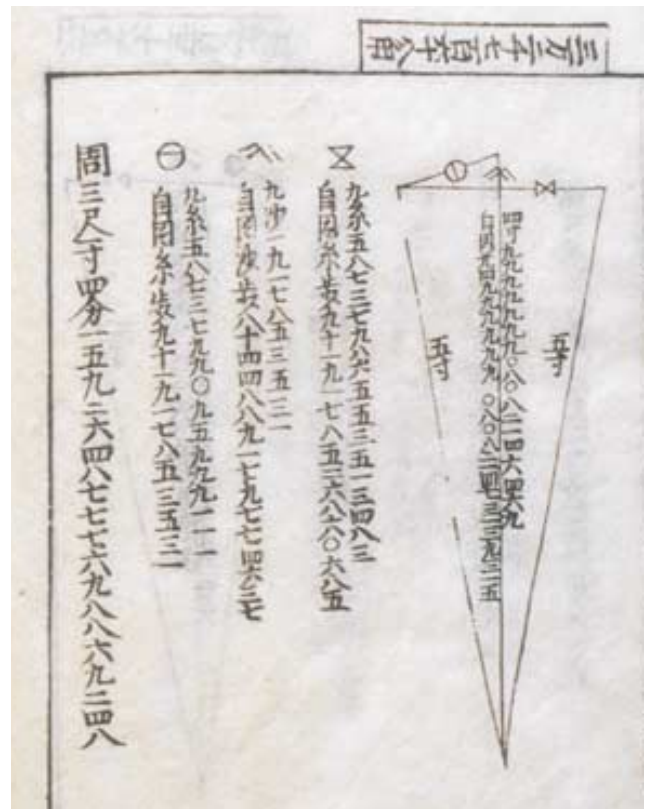 三万二千七百六十八角
五寸
四寸九九九九九九九〇八〇八二一四六四六九
自因 四九九九九九九〇八〇八二一四七三一三九三一五
五寸
九糸五八七三七九八六五五三五一三四八三
自因糸歩九十一九一七八五三六八六〇六八五
九沙一九一七八五三五三一
自因沙歩八十四四八八九一七九七七四六三七
九糸五八七三七九九〇九五九九九二一一
自因糸歩九十一九一七八五三五三一
周三尺一寸四分一五九二六四八七七七六九八八六九二四八